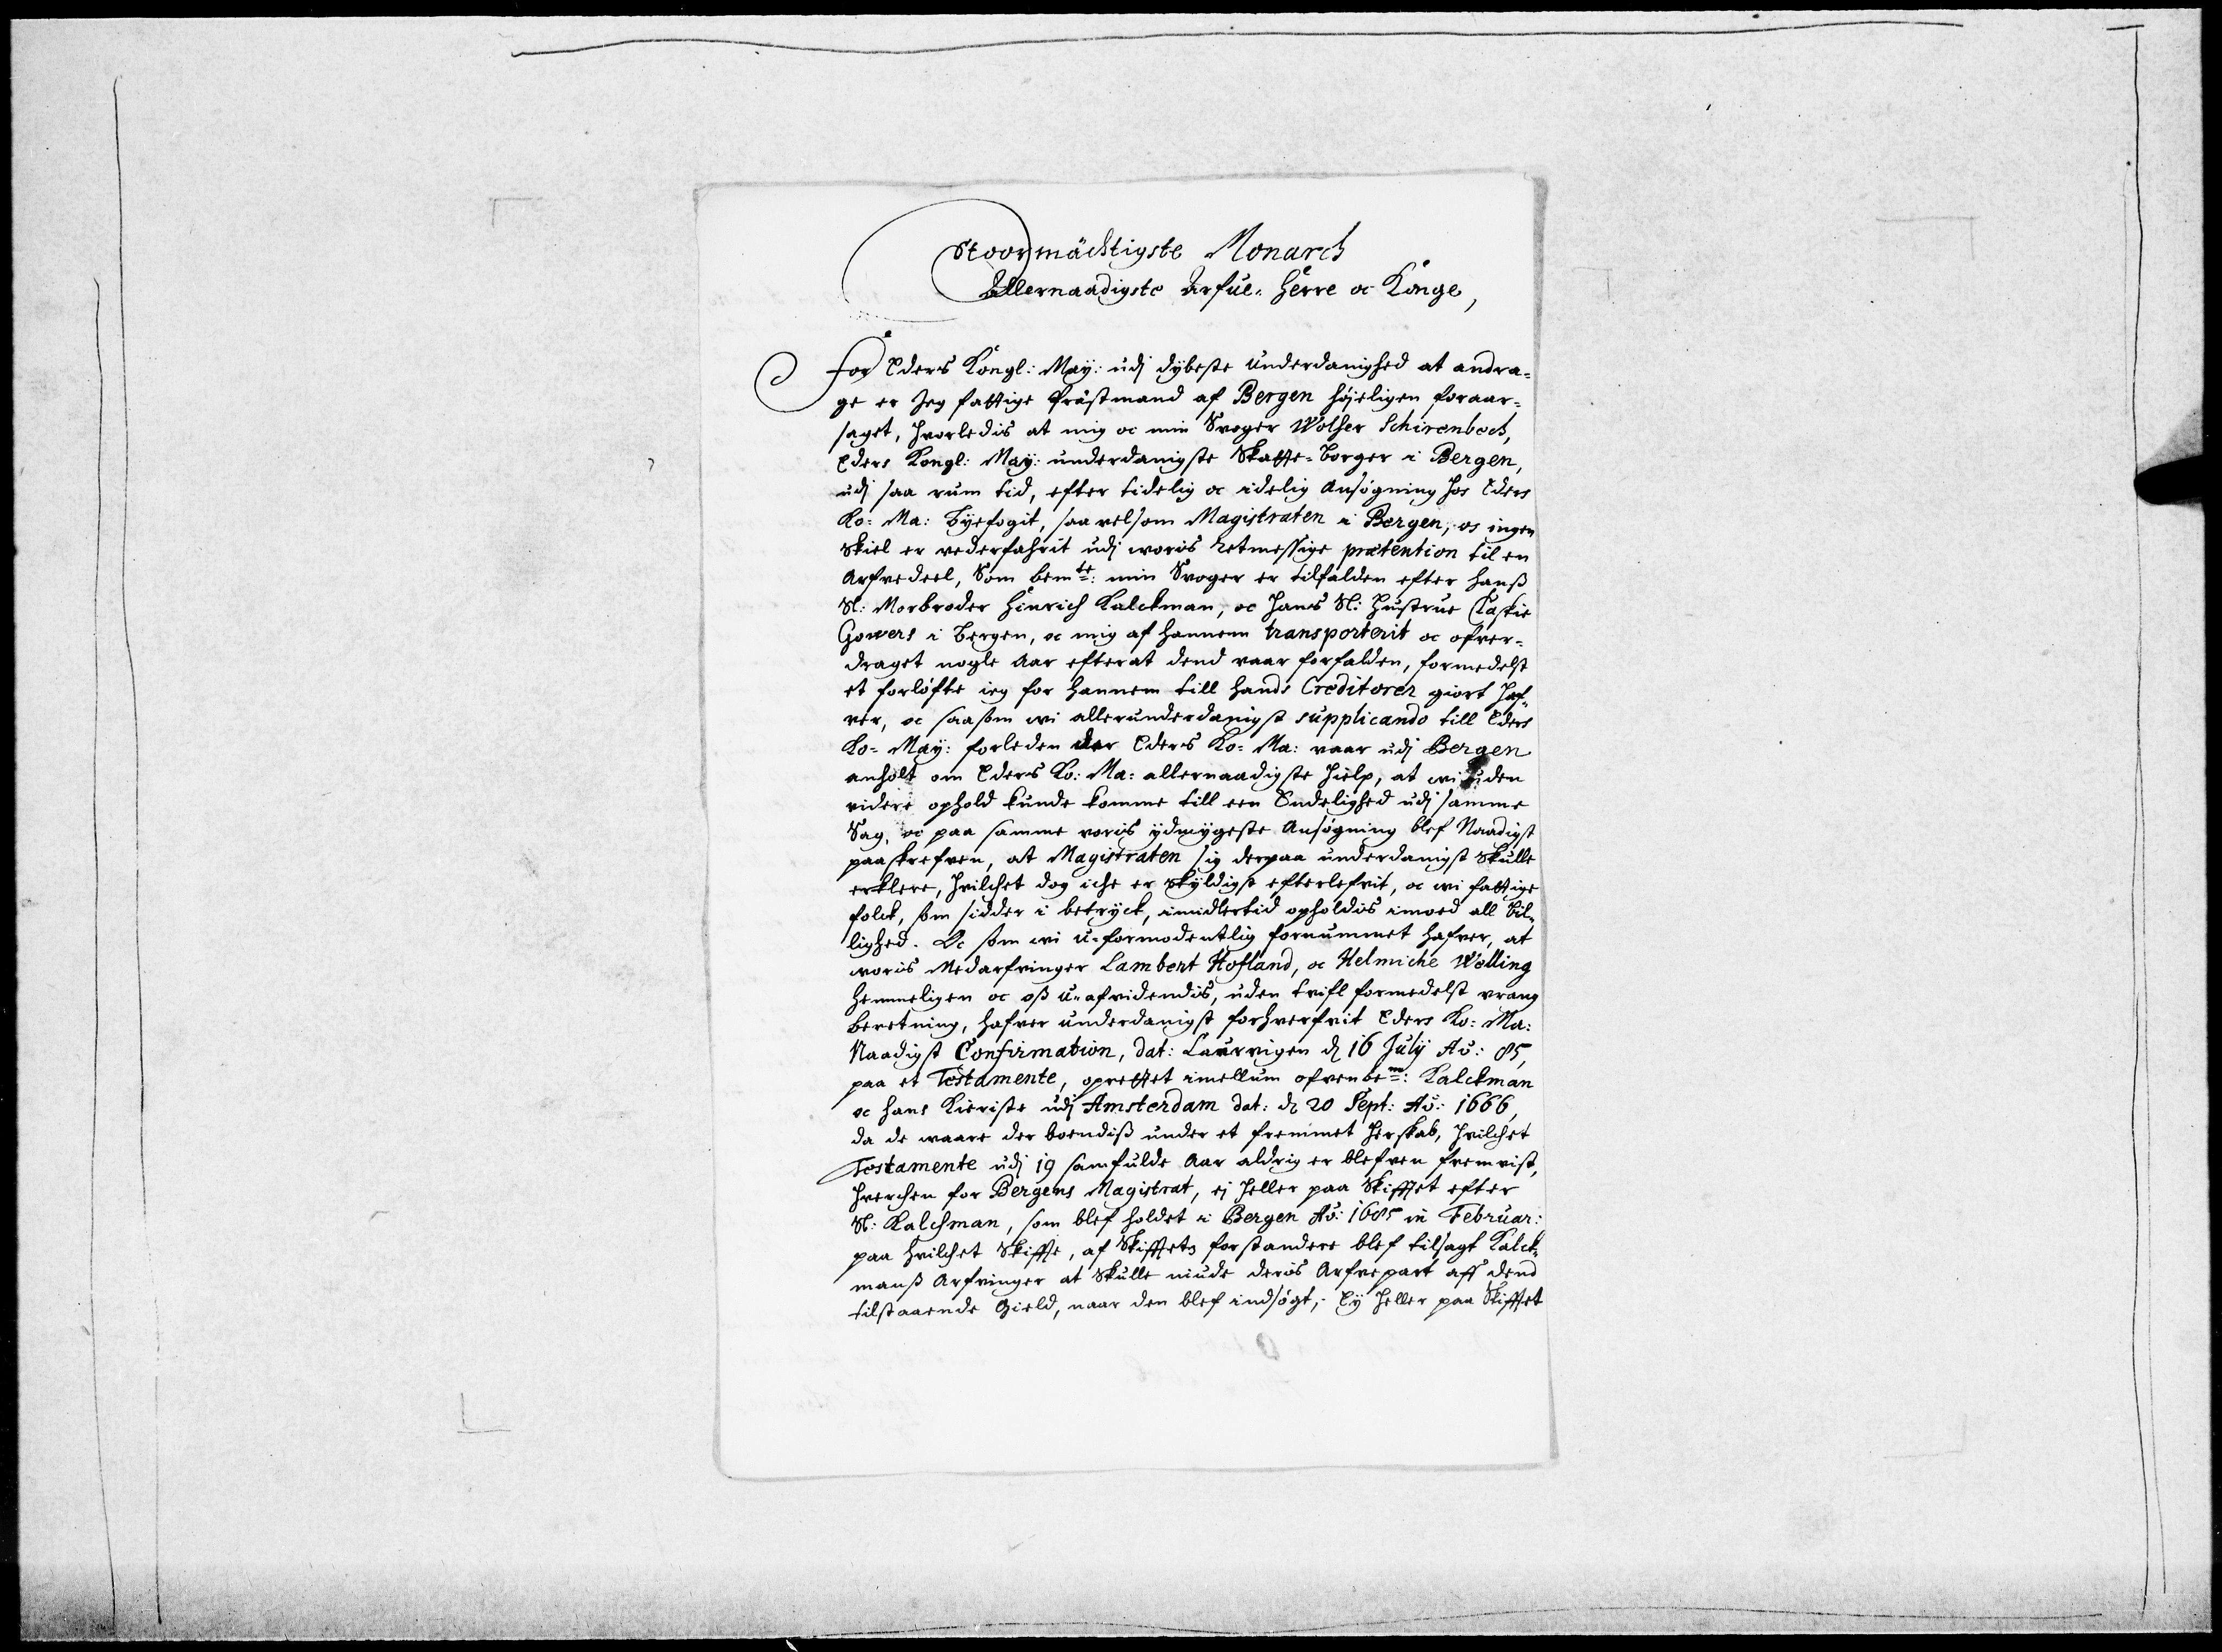 Stoormächtigste Monarch
Allernaadigste Arfue-Herre oc Konge,
For Eders Kongl: May: udj dybeste underdanighed at andra-
ge er Jeg fattige Præstmand af Bergen højeligen foraar-
saget, hvorledis at mig oc min Svoger Wolther Schirenbeck,
Eders Kongl: May: underdanigste Skatte-borger i Bergen,
udj saa rum tid, efter tidelig oc idelig Ansøgning hos Eders
Ko: Ma: byefogit, saa velsom Magistraten i Bergen, os ingen
Skiel er vederfahrit udj woris Retmessige prætention til en
Arfvedeel, Som bemte: min Svoger er tilfalden efter hanß
Sl: Morbroder Hinrich Kalckman, oc hans Sl: Hustrue
Gowers i Bergen, oc mig af hannem transporterit oc ofver-
draget nogle Aar efterat dend vaar forfalden, formedelst
et forløfte ieg for hannem till hands Creditorer giort haf-
ver, oc saasom wi allerunderdanigst supplicando till Eders
Ko- May: forleden der Eders Ko: Ma: vaar udj Bergen
anholt om Eders Ko: Ma: allernaadigste Hielp, at wi uden
videre ophold kunde komme till een Endelighed udj samme
Sag, oc paa samme voris ydmygeste Ansøgning blef Naadigst
paaskrefven, at Magistraten sig derpaa underdanigst Skulle
erklere, hvilchet dog iche er skyldigst efterlefvit, oc wi fattige
folck, som sidder i betryck, imidlertid opholdis imoed all bil-
lighed. Oc som wi u-formodentlig fornummet hafver, at
woris Medarfvinger Lambert Hofland, oc Helmiche Welling
hemmeligen oc oß u-afvidendis, uden tvifl formedelst vrang
beretning, hafver underdanigst forhverfvit Eders Ko: Ma:
Naadigst Confirmation, dat: Laurvigen d 16 July Ao: 85,
paa et Testamente, oprettet imellum ofvenbem: Kalckman
oc hans Kieriste udj Amsterdam dat: d 20 Sept: Ao: 1666,
da de waare der boendiß under et fremmet Herskab, hvilchet
Testamente udj 19 samfulde Aar aldrig er blefven fremvist,
hverchen for Bergens Magistrat, ej heller paa Skifftet efter
Sl: Kalchman, som blef holdet i Bergen Ao: 1685 in Februar:
paa hvilchet Skiffte, af Skifftets forstandere blef tilsagt Kalck-
manß Arfvinger at Skulle niude deris Arfvepart aff dend
tilstaaende Gield, naar den blef indsøgt; Ey heller paa Skifftet